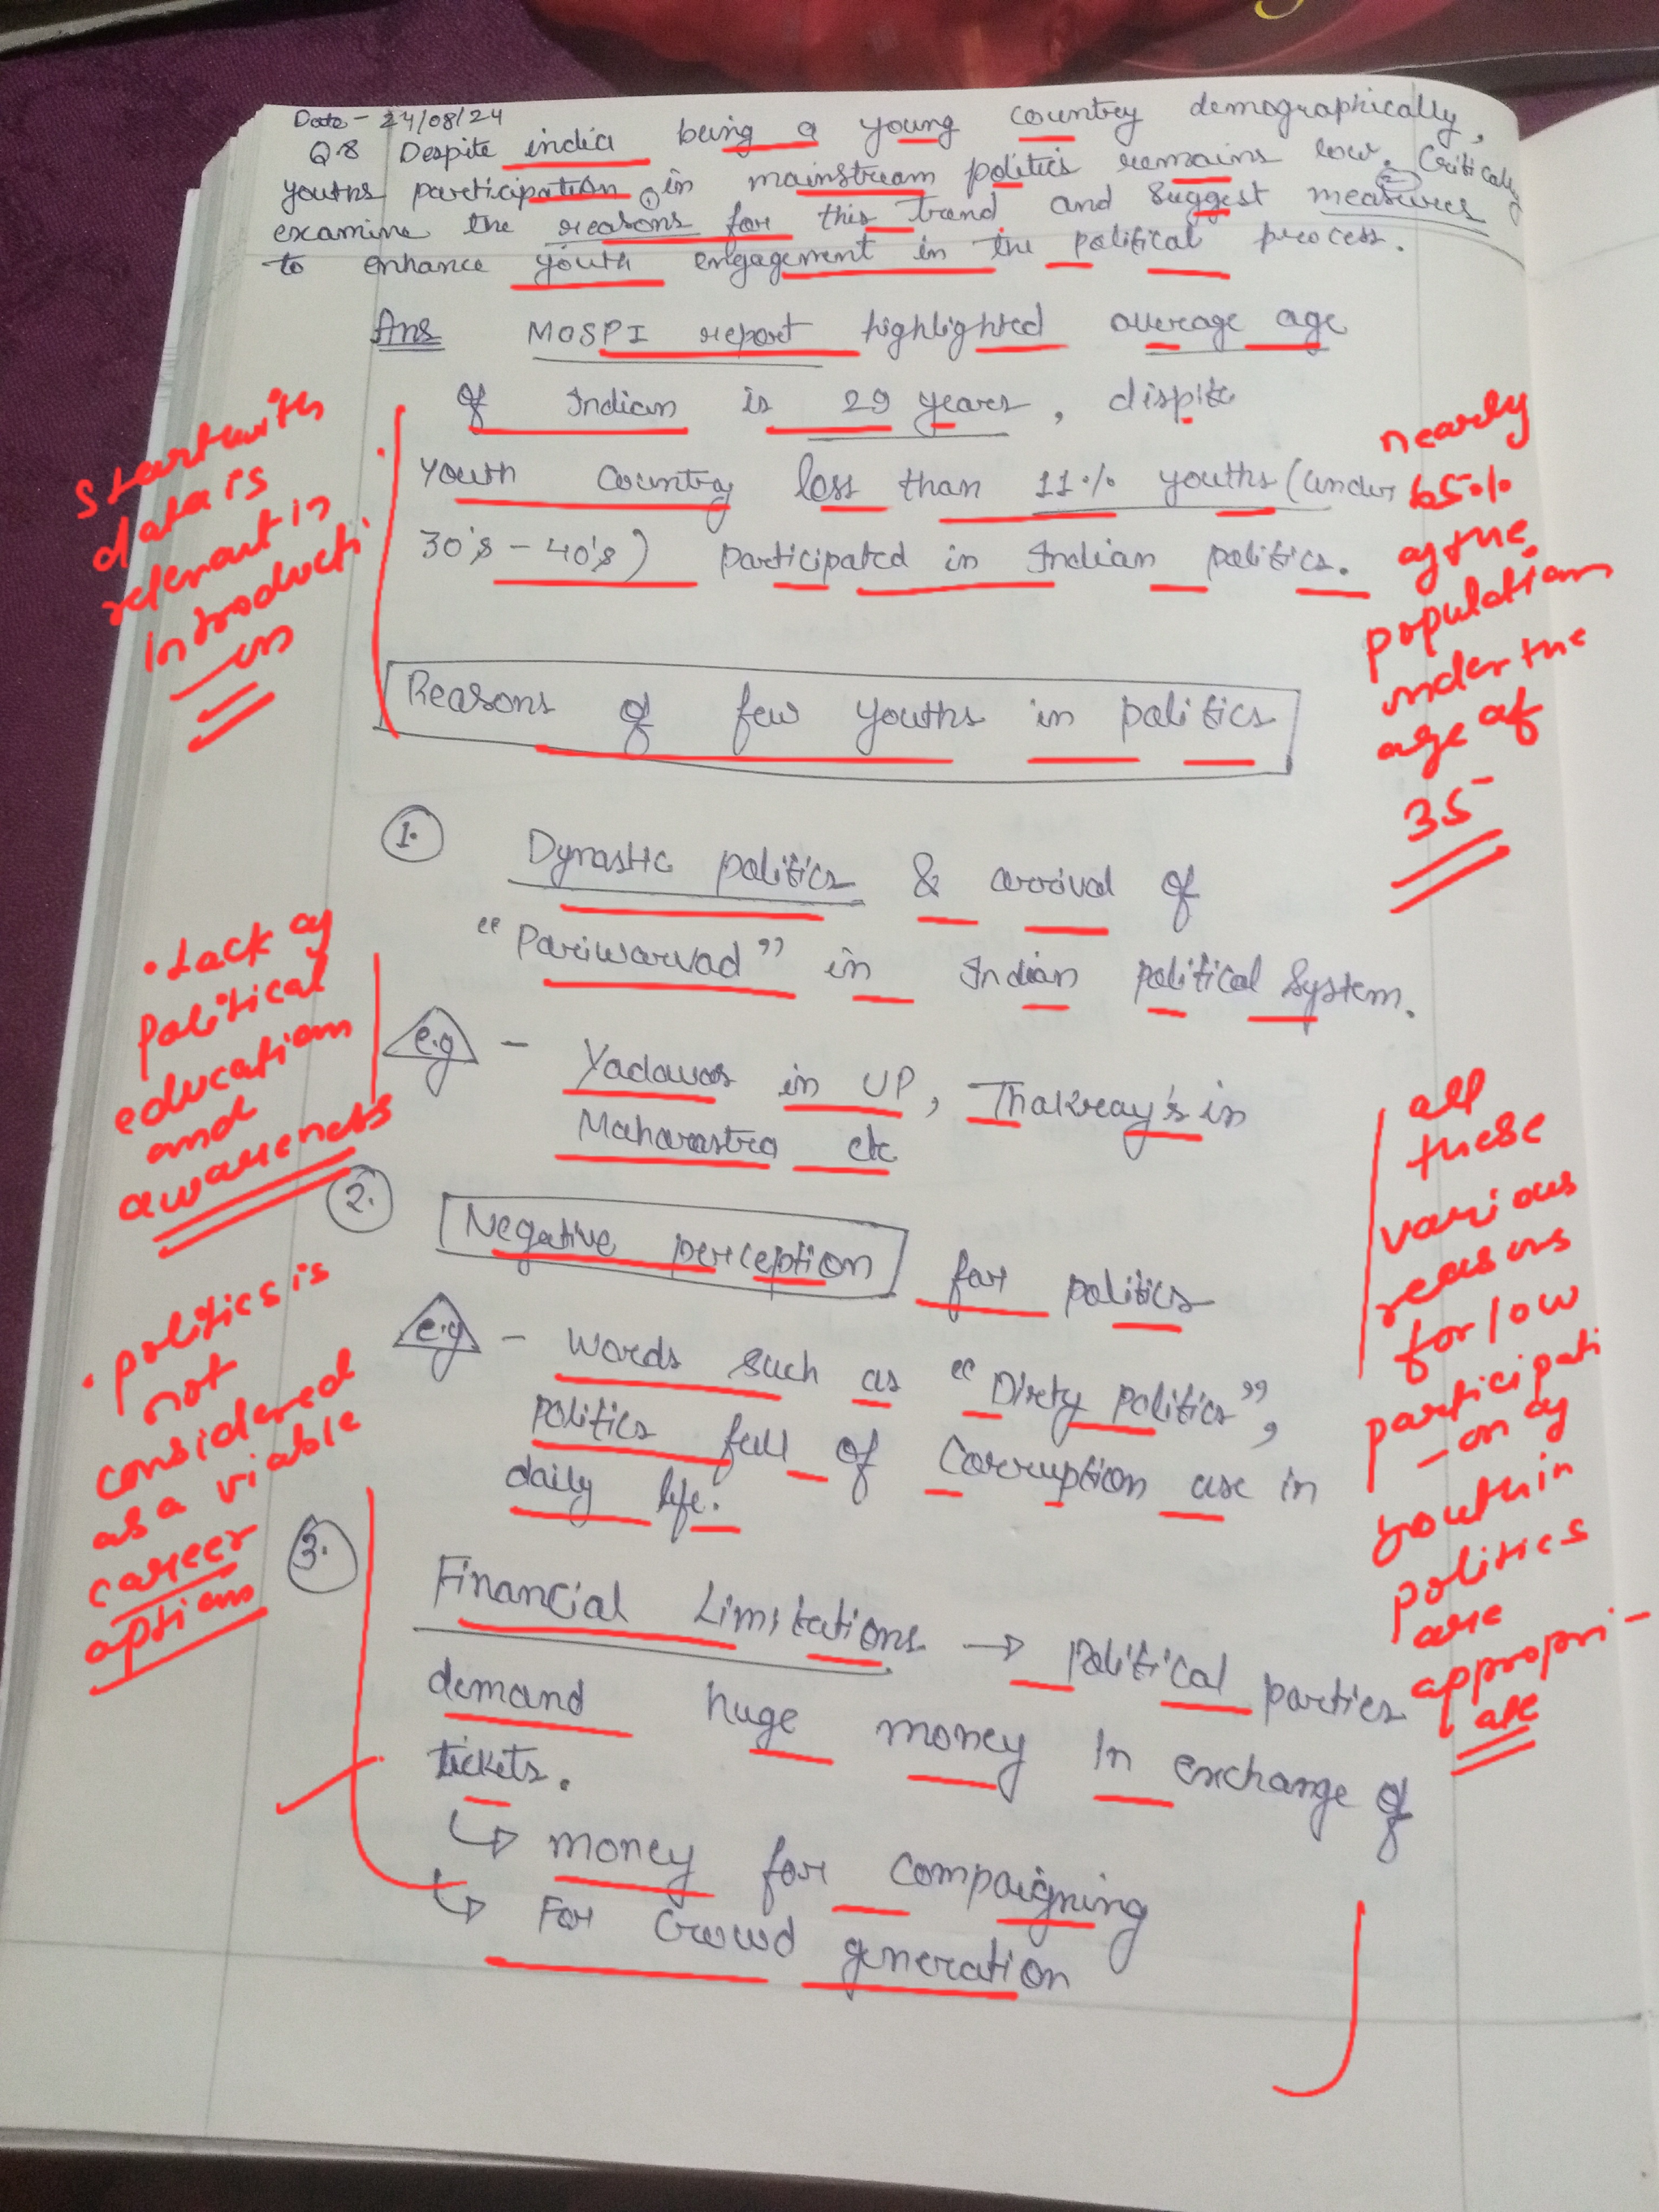 Date - 24/08/24
Q.8 Despite india being a young country demographically,
youths participation in mainstream politics remains low. Critically
examine the reasons for this trend and suggest measures
to enhance youth engagement in the political process.
Ans MOSPI report highlighted average age
of Indian is 29 years, dispite
Youth Country less than 11% youths (under
30's - 40's) participated in Indian politics.
Start with
data is
relevant in
introducti
on
nearly
65%
of the
population
under the
age of
35
Reasons of few youths in politics
1. Dynastic politics & arrival of
"Pariwarvad" in Indian political system.
e.g - Yadavas in UP, Thakreay's in
Maharastra etc
• Lack of
political
education
and
awareness
2. Negative perception for politics
e.g - Words such as "Dirty Politics",
Politics full of Corruption use in
daily life.
• politics is
not
considered
as a viable
career
option
all
these
various
reasons
for low
participati
-on of
youth in
politics
are
appropri-
ate
3. Financial Limitations → Political parties
demand huge money In exchange of
tickets.
↳ money for Compaigning
↳ For Crowd generation